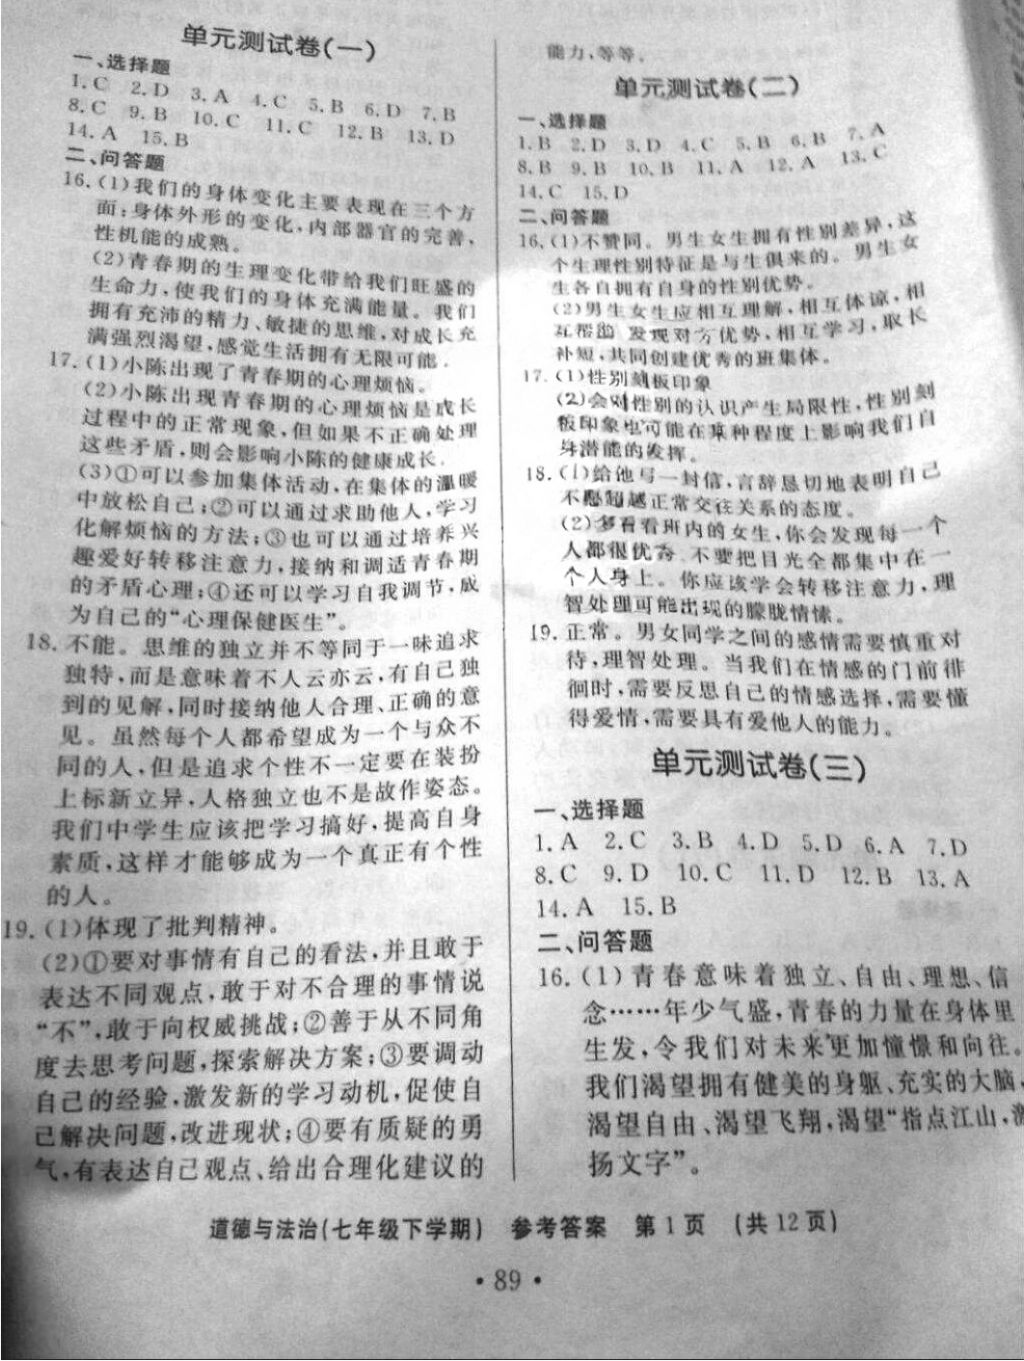 单元测试卷(一)
一、选择题
1.C 2.D 3.A 4.C 5.B 6.D 7.B
8.C 9.B 10.C 11.C 12.B 13.D
14.A 15.B
二、问答题
16.(1)我们的身体变化主要表现在三个方
面:身体外形的变化,内部器官的完善,
性机能的成熟。
(2)青春期的生理变化带给我们旺盛的
生命力,使我们的身体充满能量。我们
拥有充沛的精力、敏捷的思维,对成长充
满强烈渴望,感觉生活拥有无限可能.
17.(1)小陈出现了青春期的心理烦恼。
(2)小陈出现青春期的心理烦恼是成长
过程中的正常现象,但如果不正确处理
这些矛盾,则会影响小陈的健康成长.
(3)①可以参加集体活动,在集体的温暖
中放松自己;②可以通过求助他人,学习
化解烦恼的方法;③也可以通过培养兴
趣爱好转移注意力,接纳和调适青春期
的矛盾心理;④还可以学习自我调节,成
为自己的“心理保健医生”。
18.不能。思维的独立并不等同于一味追求
独特,而是意味着不人云亦云,有自己独
到的见解,同时接纳他人合理、正确的意
见。虽然每个人都希望成为一个与众不
同的人,但是追求个性不一定要在装扮
上标新立异,人格独立也不是故作姿态。
我们中学生应该把学习搞好,提高自身
素质,这样才能够成为一个真正有个性
的人。
19.(1)体现了批判精神。
(2)①要对事情有自己的看法,并且敢于
表达不同观点,敢于对不合理的事情说
“不”,敢于向权威挑战;②善于从不同角
度去思考问题,探索解决方案;③要调动
自己的经验,激发新的学习动机,促使自
己解决问题,改进现状;④要有质疑的勇
气,有表达自己观点、给出合理化建议的
能力,等等。
单元测试卷(二)
一、选择题
1.B 2.D 3.D 4.C 5.B 6.B 7.A
8.B 9.B 10.B 11.A 12.A 13.C
14.C 15.D
二、问答题
16.(1)不赞同。男生女生拥有性别差异,这
个生理性别特征是与生俱来的。男生女
生各自拥有自身的性别优势。
(2)男生女生应相互理解,相互体谅,相
互帮助 发现对方优势,相互学习,取长
补短,共同创建优秀的班集体。
17.(1)性别刻板印象
(2)会对性别的认识产生局限性,性别刻
板印象也可能在某种程度上影响我们自
身潜能的发挥。
18.(1)给他写一封信,言辞恳切地表明自己
不愿超越正常交往关系的态度。
(2)多看看班内的女生,你会发现每一个
人都很优秀 不要把目光全都集中在一
个人身上。你应该学会转移注意力,理
智处理可能出现的朦胧情愫。
19.正常。男女同学之间的感情需要慎重对
待,理智处理。当我们在情感的门前徘
徊时,需要反思自己的情感选择,需要懂
得爱情,需要具有爱他人的能力。
单元测试卷(三)
一、选择题
1.A 2.C 3.B 4.D 5.D 6.A 7.D
8.C 9.D 10.C 11.D 12.B 13.A
14.A 15.B
二、问答题
16.(1)青春意味着独立、自由、理想、信
念……年少气盛,青春的力量在身体里
生发,令我们对未来更加憧憬和向往。
我们渴望拥有健美的身躯、充实的大脑,
渴望自由、渴望飞翔,渴望“指点江山,激
扬文字”。
道德与法治(七年级下学期) 参考答案 第1页 (共12页)
· 89 ·